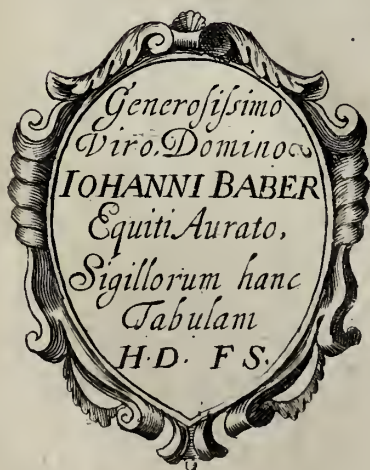 Generosiſsimo
Viro, Domino
IOHANNI BABER
Equiti Aurato,
Sigillorum hanc
Tabulam
H·D· F S·